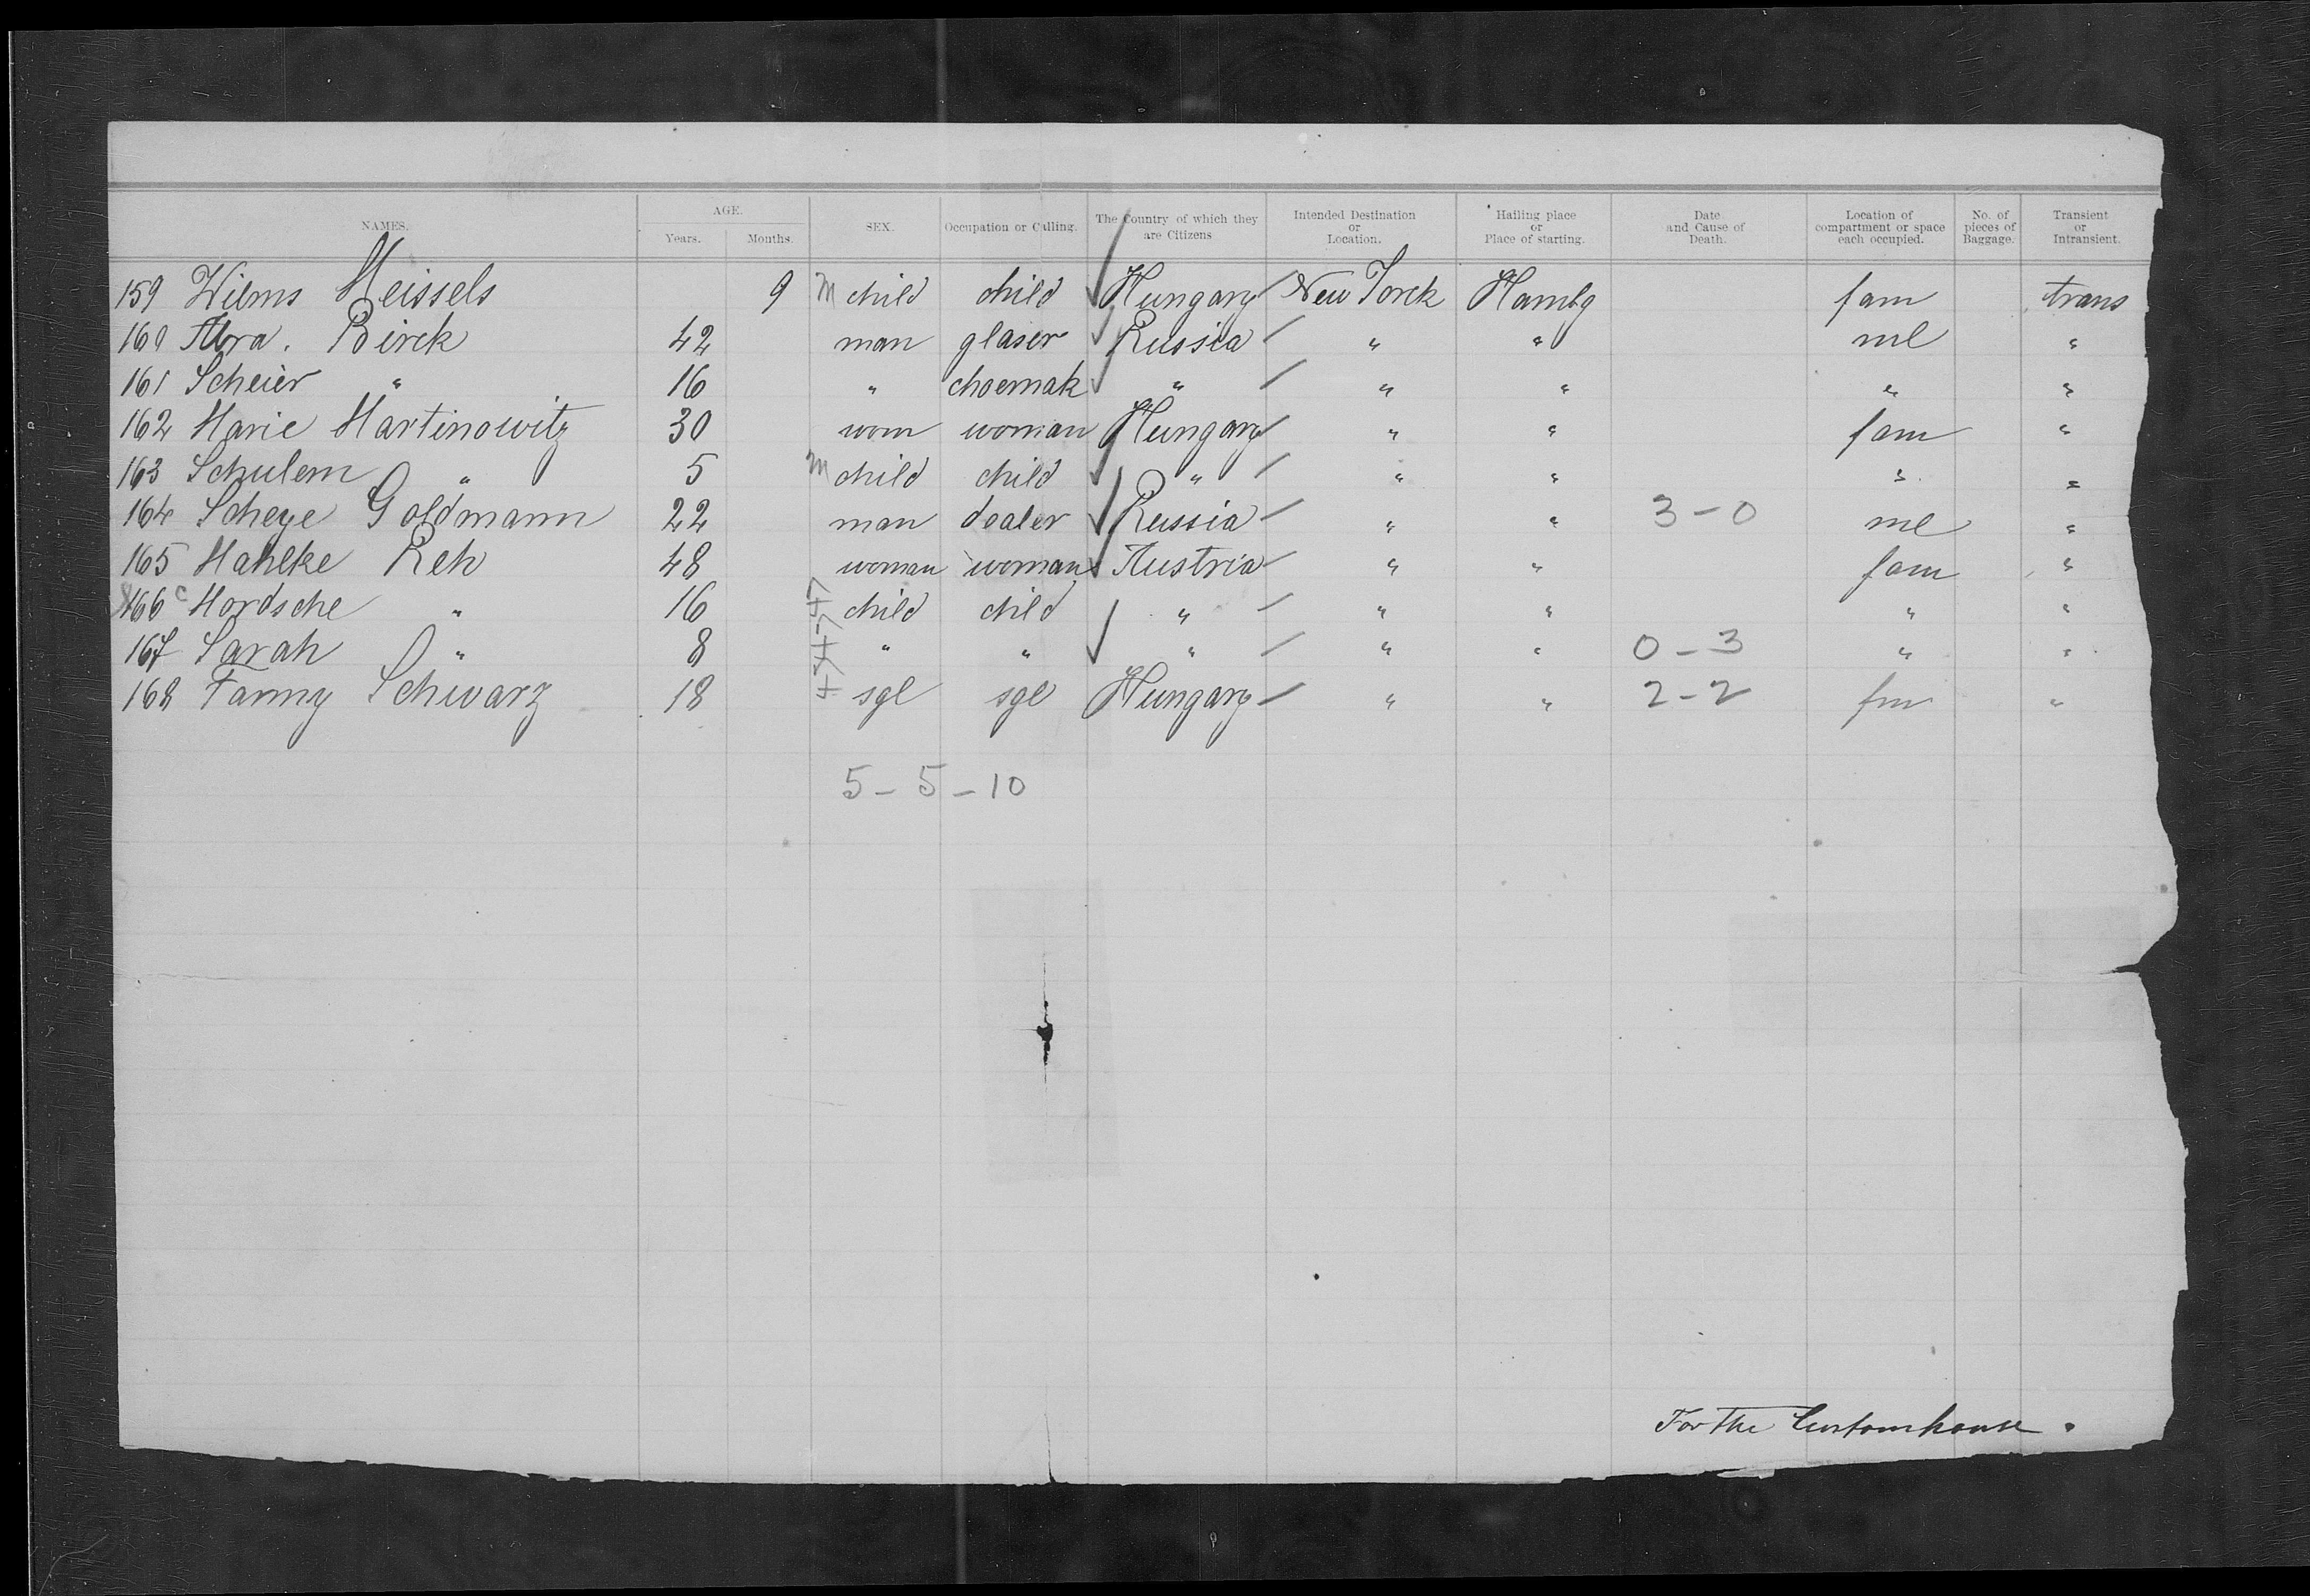 NAMES. AGE. Years. Months. SEX. Occupation or Calling. The Country of which they are Citizens Intended Destination or Location. Hailing place or Place of starting. Date and Cause of Death. Location of compartment or space each occupied. No. of pieces of Baggage. Transient or Intransient.
159 Wilms Meissels 9 M child child Hungary New Yorck Hambg fam trans
160 Abra. Birck 42 man glaser Russia " " ml "
161 Scheier " 16 " choemak " " " " "
162 Marie Martinowitz 30 wom woman Hungary " " fam "
163 Schulem " 5 M child child " " " " "
164 Scheye Goldmann 22 man dealer Russia " " 3-0 ml "
165 Mahlke Reh 48 woman woman Austria " " fam "
166 c Mordsche " 16 child child " " " " "
167 Sarah " 8 " " " " " 0-3 " "
168 Fanny Schwarz 18 sgl sgl Hungary " " 2-2 fm "
5-5-10
For the Customhouse.